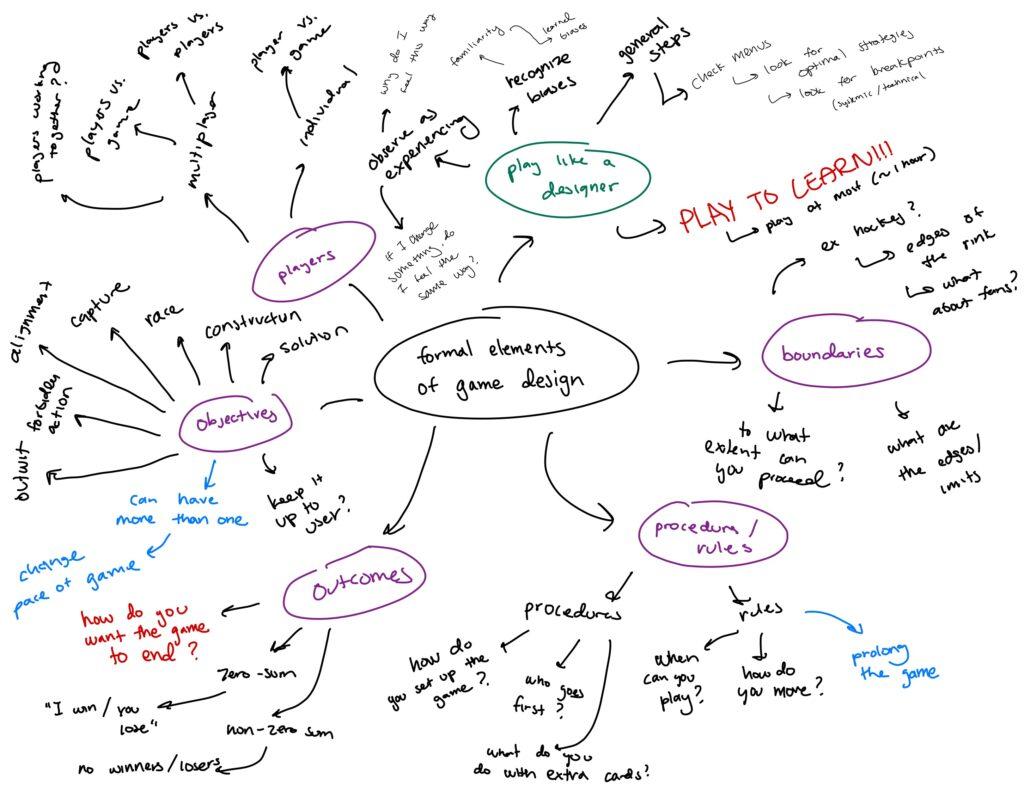 formal elements
of game design
play like a
designer
general
steps
check menus
look for
optimal strategies
look for breakpoints
(systemic / technical)
recognize
biases
familiarity
learned
biases
observe as
experiencing
why do I
feel this way
if I change
something, do
I feel the
same way?
PLAY TO LEARN!!!
play at most (~1 hour)
players
individual
player vs.
game
multiplayer
players vs.
players
players vs.
game
players working
together??
boundaries
ex hockey?
edges of
the rink
what
about fans?
to what
extent can
you proceed?
what are
the edges/
limits
objectives
solution
construction
race
capture
alignment
forbidden
action
outwit
can have
more than one
change
pace of game
keep it
up to
user?
outcomes
how do you
want the game
to end?
zero-sum
"I win / you
lose"
non-zero sum
no winners/losers
procedural /
rules
procedures
how do
you set up the
game?
who goes
first?
what do you
do with extra cards?
rules
when
can you
play?
how do
you move?
prolong
the game